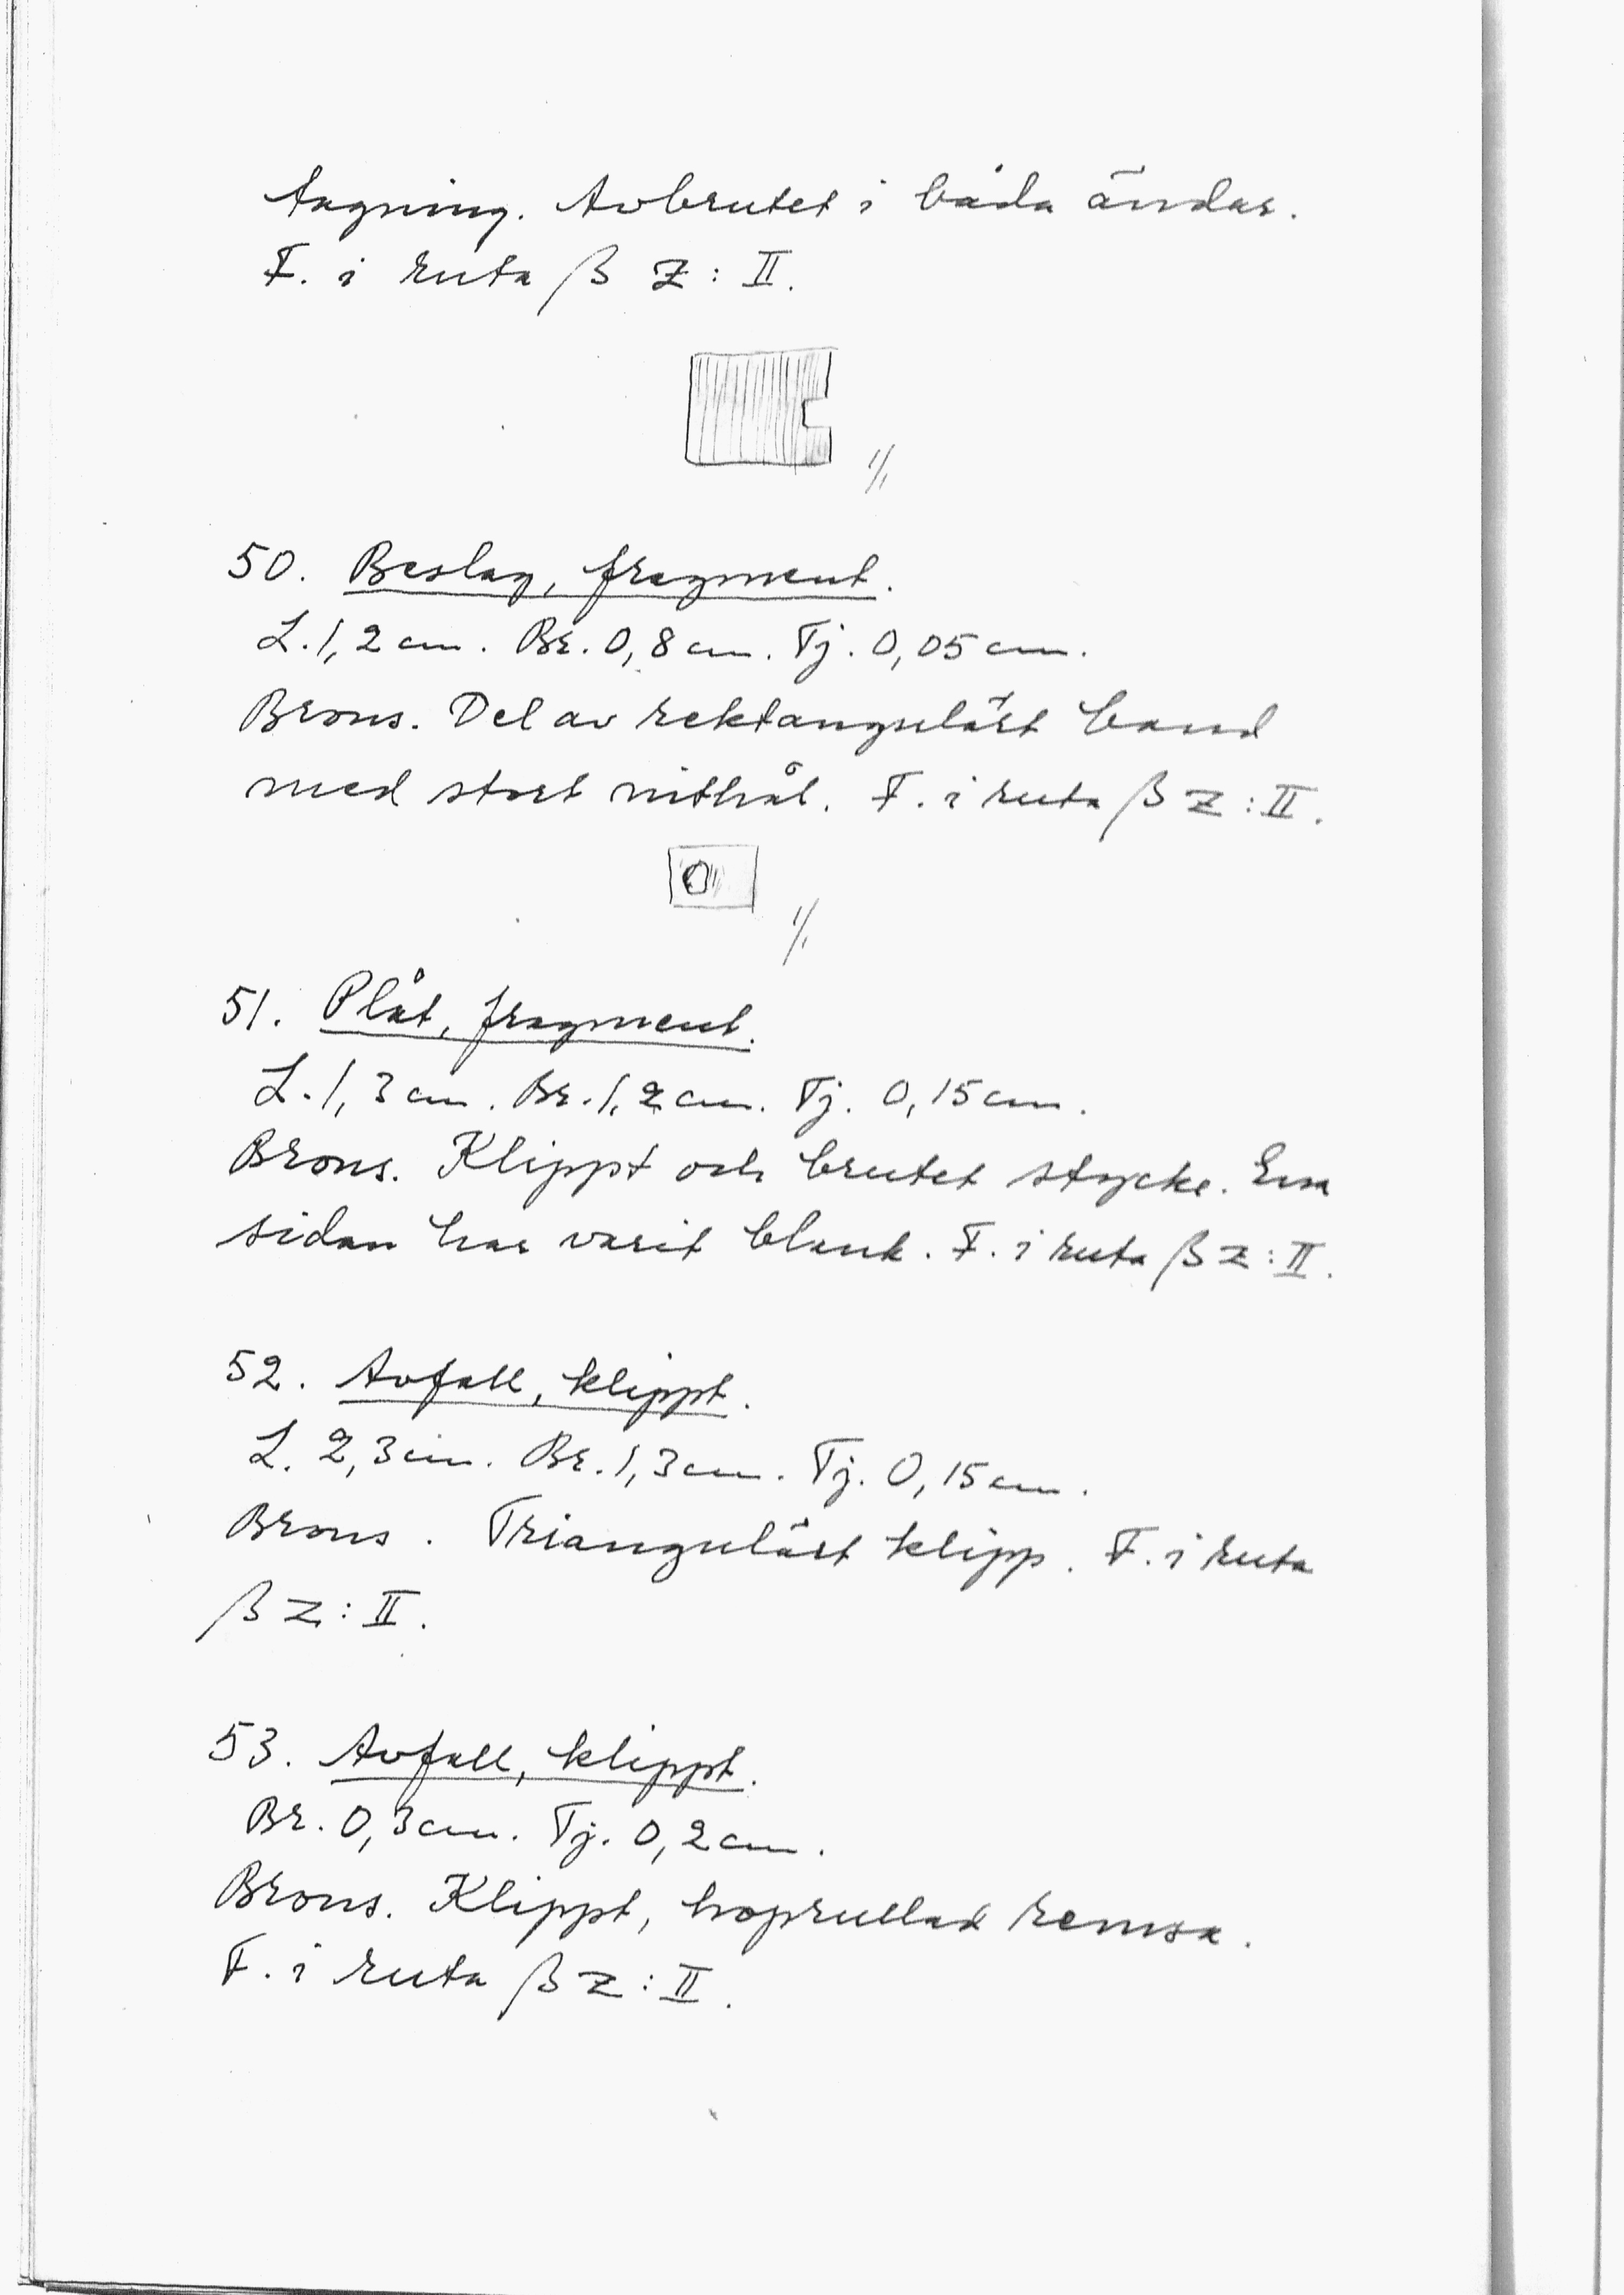 tagning. Avbrutet i båda ändar.
F. i ruta β Z : II.
1/1
50. Beslag, fragment.
L. 1,2 cm. Br. 0,8 cm. Tj. 0,05 cm.
Brons. Del av rektangulärt band
med stort nithål. F. i ruta β Z : II.
1/1
51. Plåt, fragment.
L. 1,3 cm. Br. 1,2 cm. Tj. 0,15 cm.
Brons. Klippt och brutet stycke. Ena
sidan har varit blank. F. i ruta β Z : II.
52. Avfall, klippt.
L. 2,3 cm. Br. 1,3 cm. Tj. 0,15 cm.
Brons. Triangulärt klipp. F. i ruta
β Z : II.
53. Avfall, klippt.
Br. 0,3 cm. Tj. 0,2 cm.
Brons. Klippt, hoprullad remsa.
F. i ruta β Z : II.